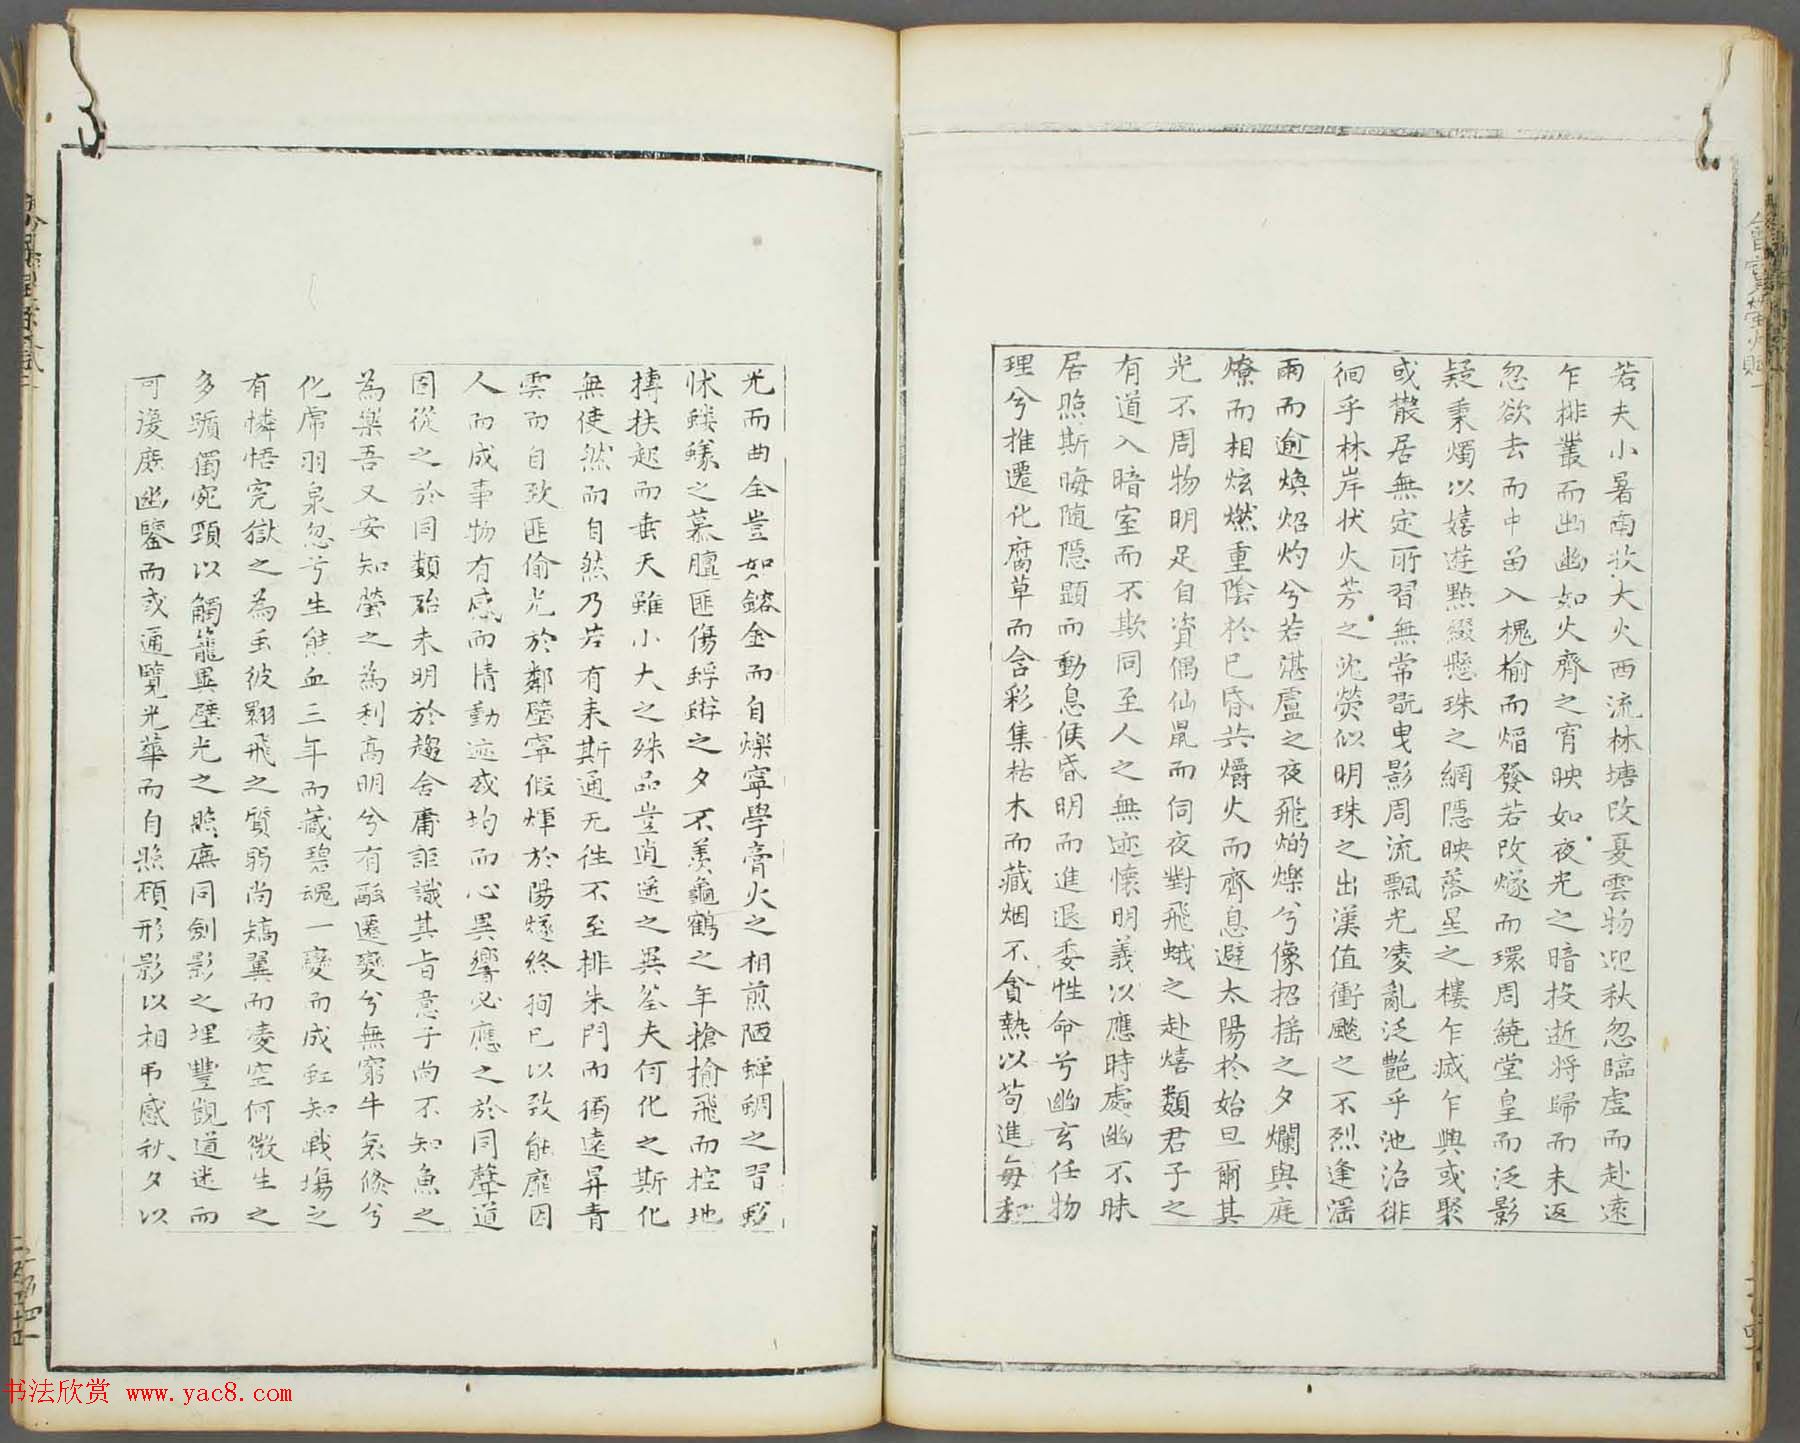 若夫小暑南收大火西流林塘改夏雲物迎秋忽臨虛而赴遠
乍排叢而出幽如火齊之宵映如夜光之暗投逝將歸而未返
忽欲去而中留入槐榆而焰發若改燧而環周繞堂皇而泛影
疑秉燭以嬉遊點綴懸珠之網隱映落星之樓乍滅乍興或聚
或散居無定所習無常翫曳影周流飄光凌亂泛艷乎池沼徘
徊乎林岸狀火芳之沈熒似明珠之出漢值衝飈之不烈逢滛
雨而逾煥炤灼兮若湛盧之夜飛灼爍兮像招搖之夕爛與庭
燎而相炫燃重陰於已昏共爝火而齊息避太陽於始旦爾其
光不周物明足自資偶仙鼠而伺夜對飛蛾之赴熺類君子之
有道入暗室而不欺同至人之無迹懷明義以應時處幽不昧
居照斯晦隨隱顯而動息候昏明而進退委性命兮幽玄任物
理兮推遷化腐草而含彩集枯木而藏烟不貪熱以苟進每和
光而曲全豈如鎔金而自爍寧學膏火之相煎陋蟬蜩之習蛻
怵螻蟻之慕膻匪傷蜉蝣之夕不羨龜鶴之年搶揄飛而控地
摶扶起而垂天雖小大之殊品豈逍遥之異荃夫何化之斯化
無使然而自然乃若有来斯通无往不至排朱門而獨遠昇青
雲而自致匪偷光於鄰壁寧假煇於陽燧終徇已以致能靡因
人而成事物有感而情動迹或均而心異響必應之於同聲道
固從之於同類殆未明於趨舍庸詎識其旨意子尚不知魚之
為樂吾又安知螢之為利高明兮有融遷變兮無窮牛哀倐兮
化席羽泉忽兮生熊血三年而藏碧魂一變而成虹知戰場之
有憐悟寃獄之為虫彼翾飛之質弱尚矯翼而凌空何微生之
多躓獨宛頸以觸籠異壁光之照廡同劍影之埋豐覬道迷而
可復庶幽鑒而或通覽光華而自照頋形影以相弔感秋夕以
书法欣赏 www.yac8.com